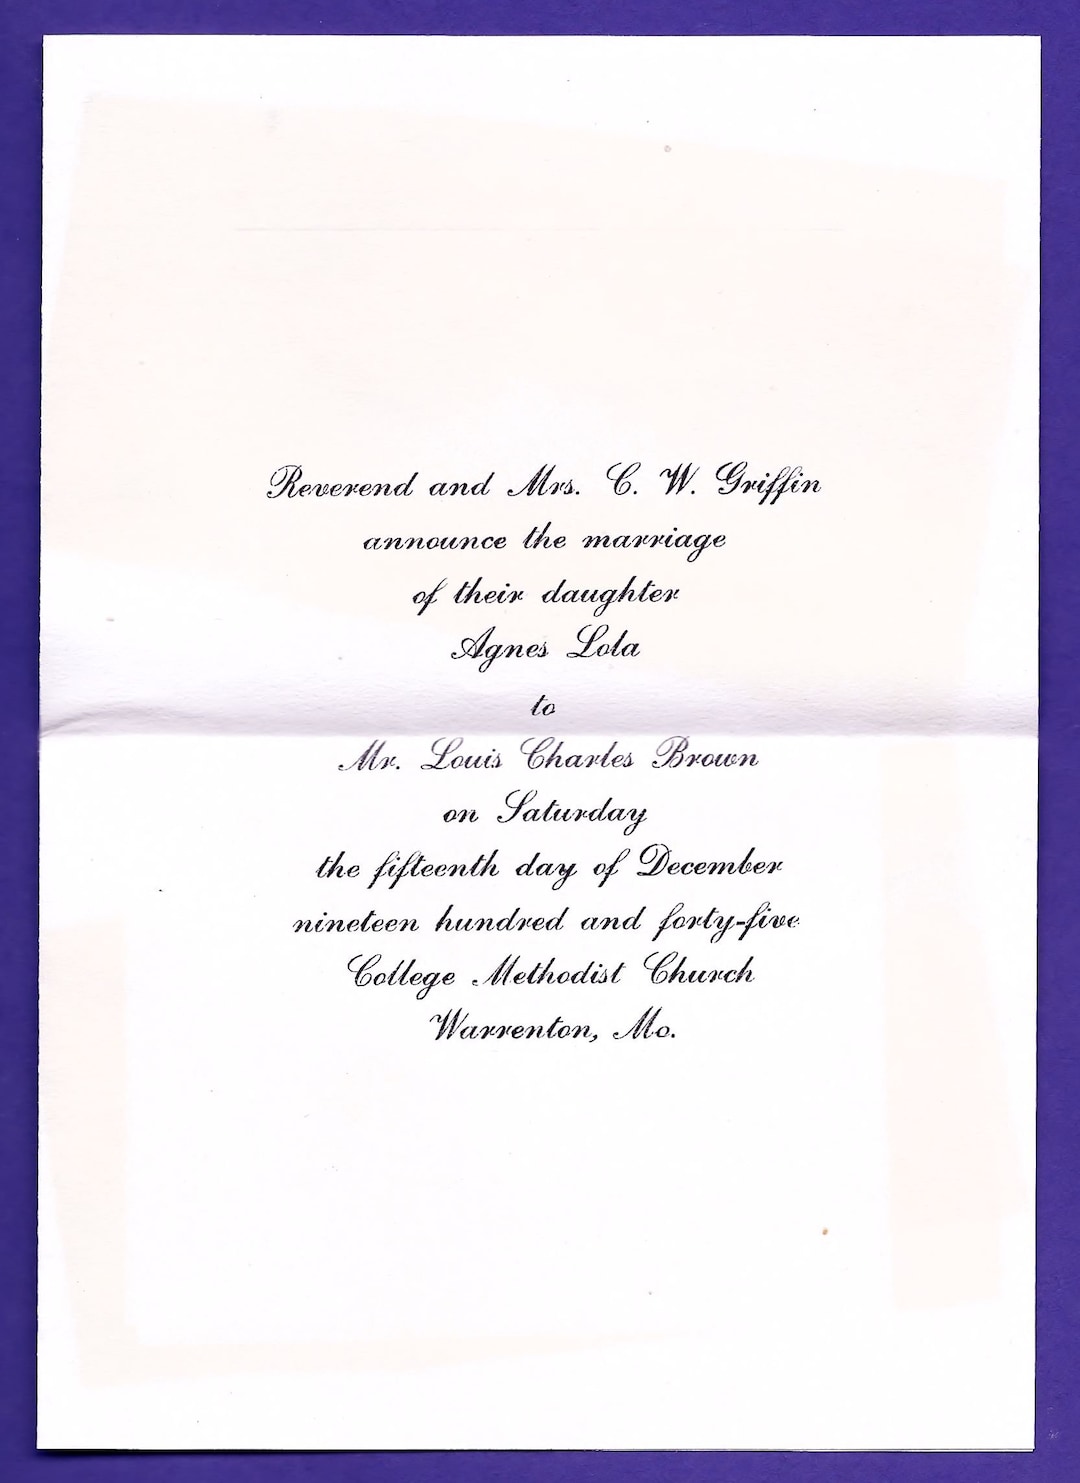 Reverend and Mrs. C. W. Griffin
announce the marriage
of their daughter
Agnes Lola
to
Mr. Louis Charles Brown
on Saturday
the fifteenth day of December
nineteen hundred and forty-five
College Methodist Church
Warrenton, Mo.